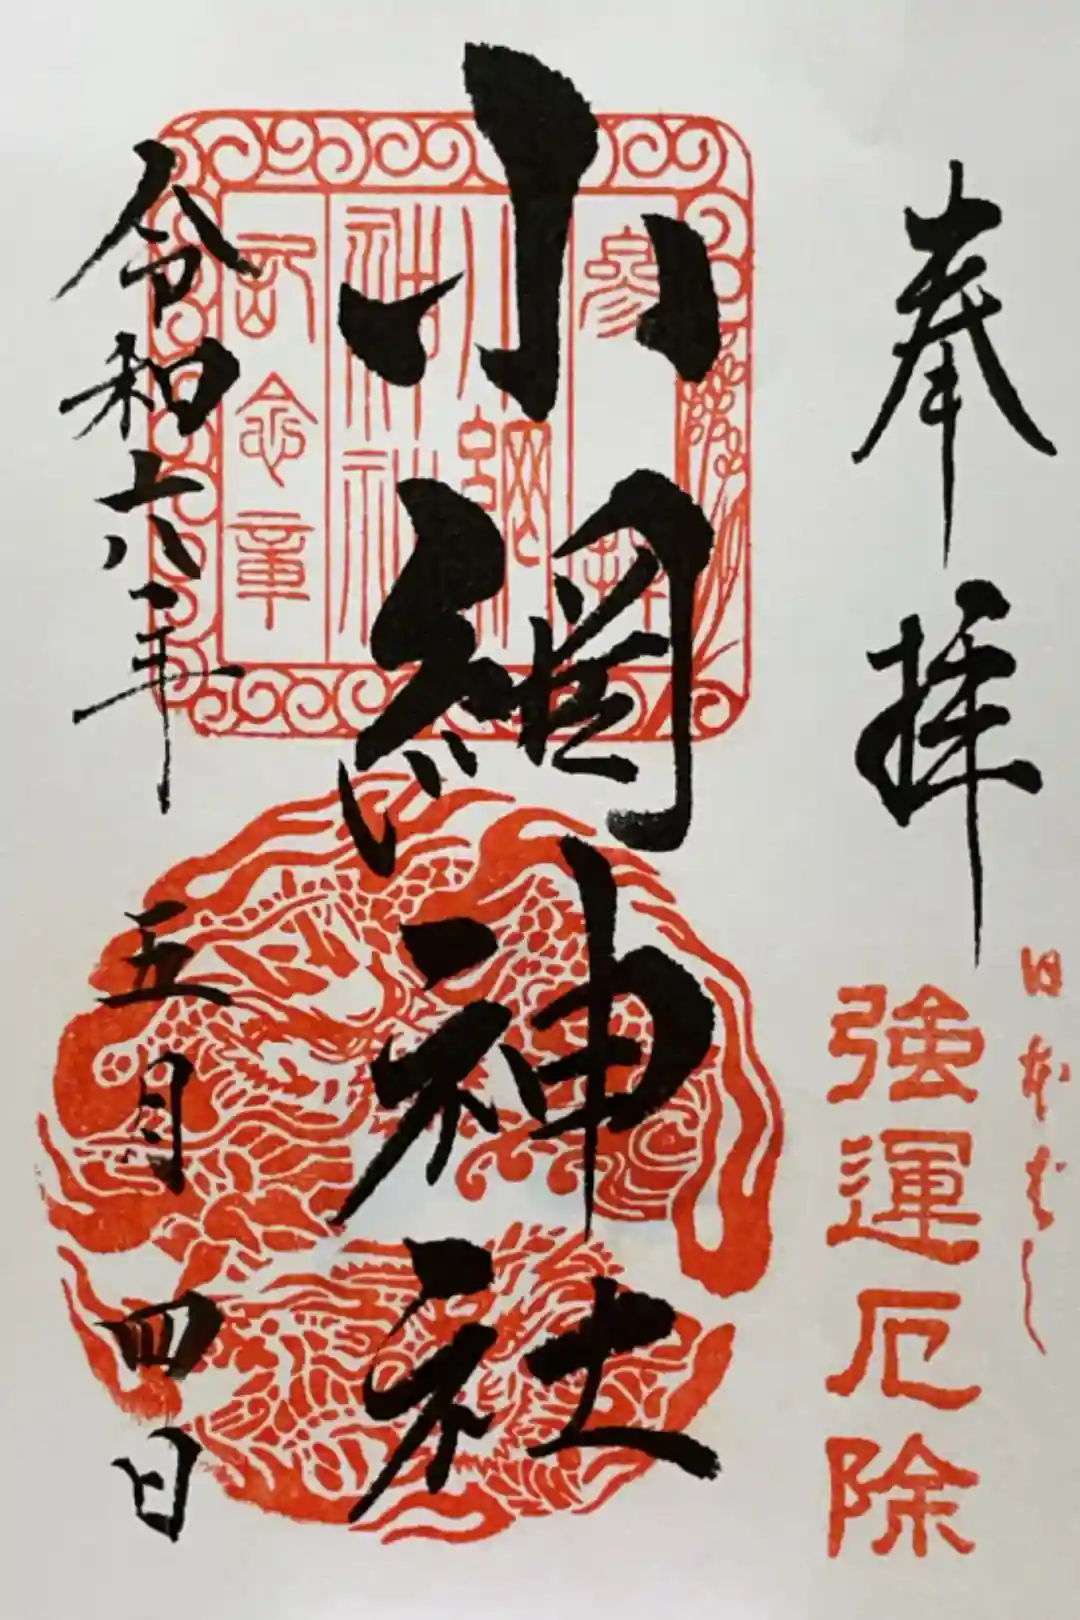 奉拝
日本ばし
強運厄除
小網神社
参拝
小網
神社
記念章
令和六年
五月四日